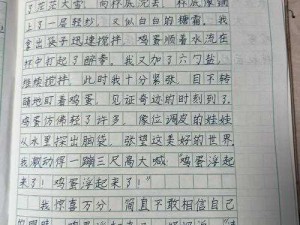 了茫茫大雪，向杯底沉去，杯底像铺
上了一层轻纱，又似白白的糖霜。我
拿出筷子迅速搅拌，鸡蛋顺着水流在
杯中打起了醉拳。我又加了六勺盐，
继续搅拌，此时我十分紧张，目不转
睛地盯着鸡蛋，见证奇迹的时刻到了，
鸡蛋仿佛轻了许多，像位调皮的娃娃
从水里探出脑袋，张望这美好的世界，
我激动得一蹦三尺高大喊“鸡蛋浮起
来了！鸡蛋浮起来了！”
我惊喜万分，简直不敢相信自己